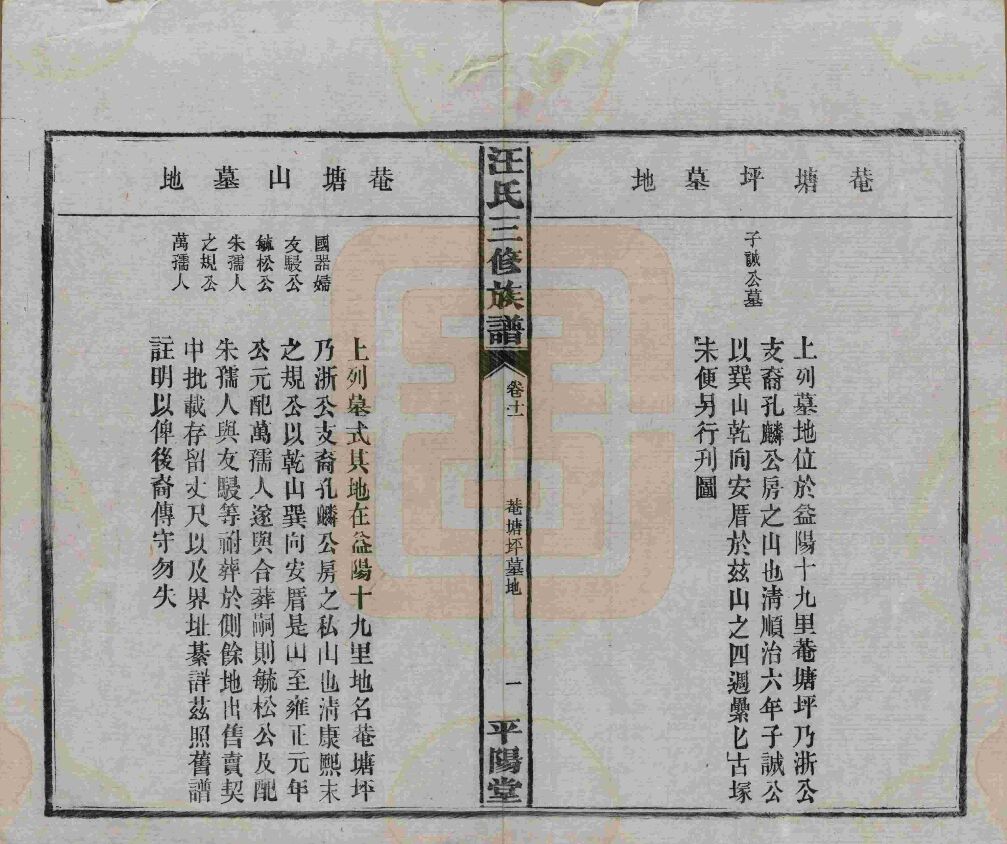 菴塘坪墓地
子誠公墓
上列墓地位於益陽十九里菴塘坪乃浙公
支裔孔麟公房之山也清順治六年子誠公
以巽山乾向安厝於茲山之四週纍匕古塚
未便另行刊圖
汪氏三修族譜
卷十一
菴塘坪墓地
一
平陽堂
菴塘山墓地
國器婦
友騣公
毓松公
朱孺人
之規公
萬孺人
上列墓式其地在益陽十九里地名菴塘坪
乃浙公支裔孔麟公房之私山也清康熙末
之規公以乾山巽向安厝是山至雍正元年
公元配萬孺人遂與合葬嗣則毓松公及配
朱孺人與友騣等祔葬於側餘地出售賣契
中批載存留丈尺以及界址綦詳茲照舊譜
註明以俾後裔傳守勿失